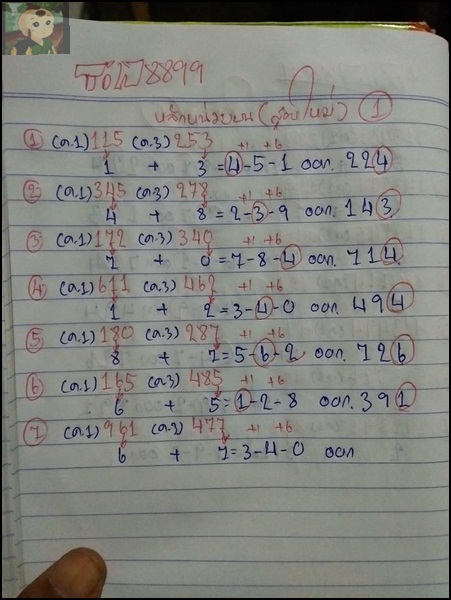 8899
หลักหน่วยบน(สูตรใหม่) 1
1 (ต.1)115 (ต.3)253 +1 +6
1 + 3=4-5-1 ออก. 224
2 (ต.1)345 (ต.3)278 +1 +6
4 + 8=2-3-9 ออก. 143
3 (ต.1)172 (ต.3)340 +1 +6
7 + 0=7-8-4 ออก. 714
4 (ต.1)611 (ต.3)462 +1 +6
1 + 2=3-4-0 ออก. 494
5 (ต.1)180 (ต.3)287 +1 +6
8 + 7=5-6-2 ออก. 726
6 (ต.1)165 (ต.3)485 +1 +6
6 + 5=1-2-8 ออก. 391
7 (ต.1)961 (ต.3)477 +1 +6
6 + 7=3-4-0 ออก